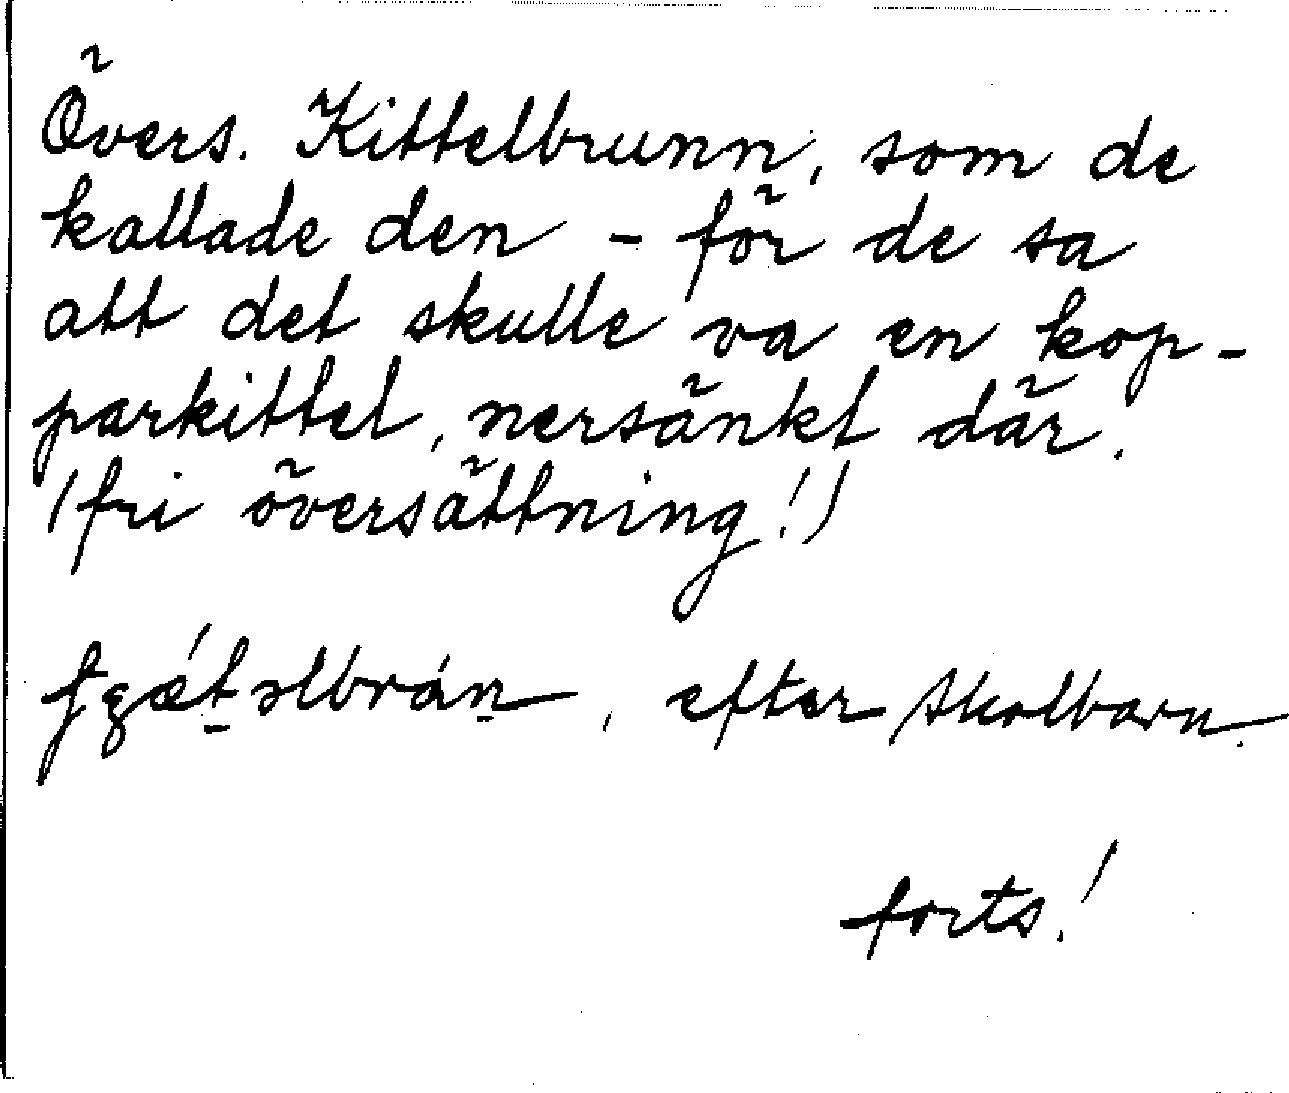 Övers. Kittelbrunn, som de
kallade den – för de sa
att det skulle va en kop-
parkittel, nersänkt där.
(fri översättning!)
, efter skolbarn.
forts!